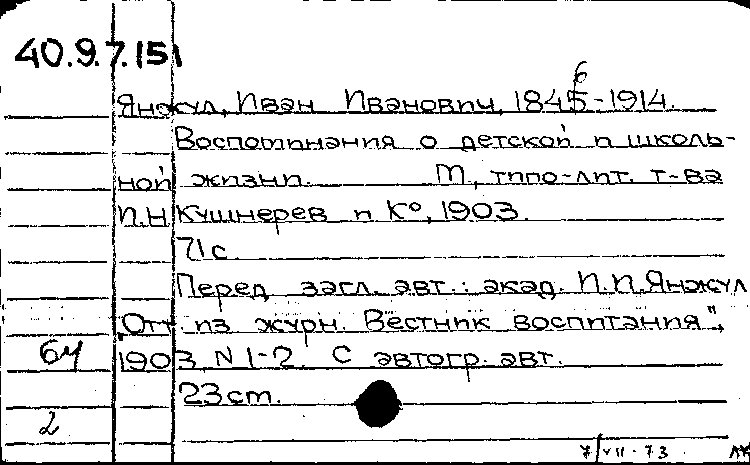 40.9.7.151
6
Янжул, Иван Иванович, 1845-1914.
Воспоминания о детской и школь-
ной жизни. М, типо-лит. т-ва
И.Н Кушнерев и К°, 1903.
71 с.
Перед загл. авт.: акад. И.И.Янжул
"Отт. из журн. Вестник воспитания",
бч 1903, N 1-2. С автогр. авт.
23 cm.
2
7/VII-73